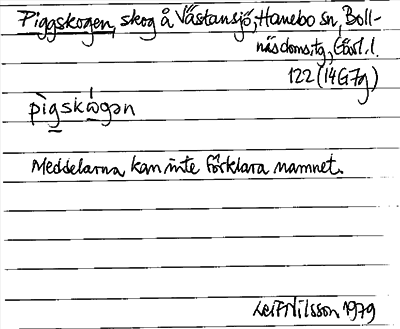 Piggskogen, skog å Västansjö, Hanebo sn, Boll-
näs domstg, Gävl. l.
122 (14G7g)
Meddelarna kan inte förklara namnet.
Leif Nilsson 1979